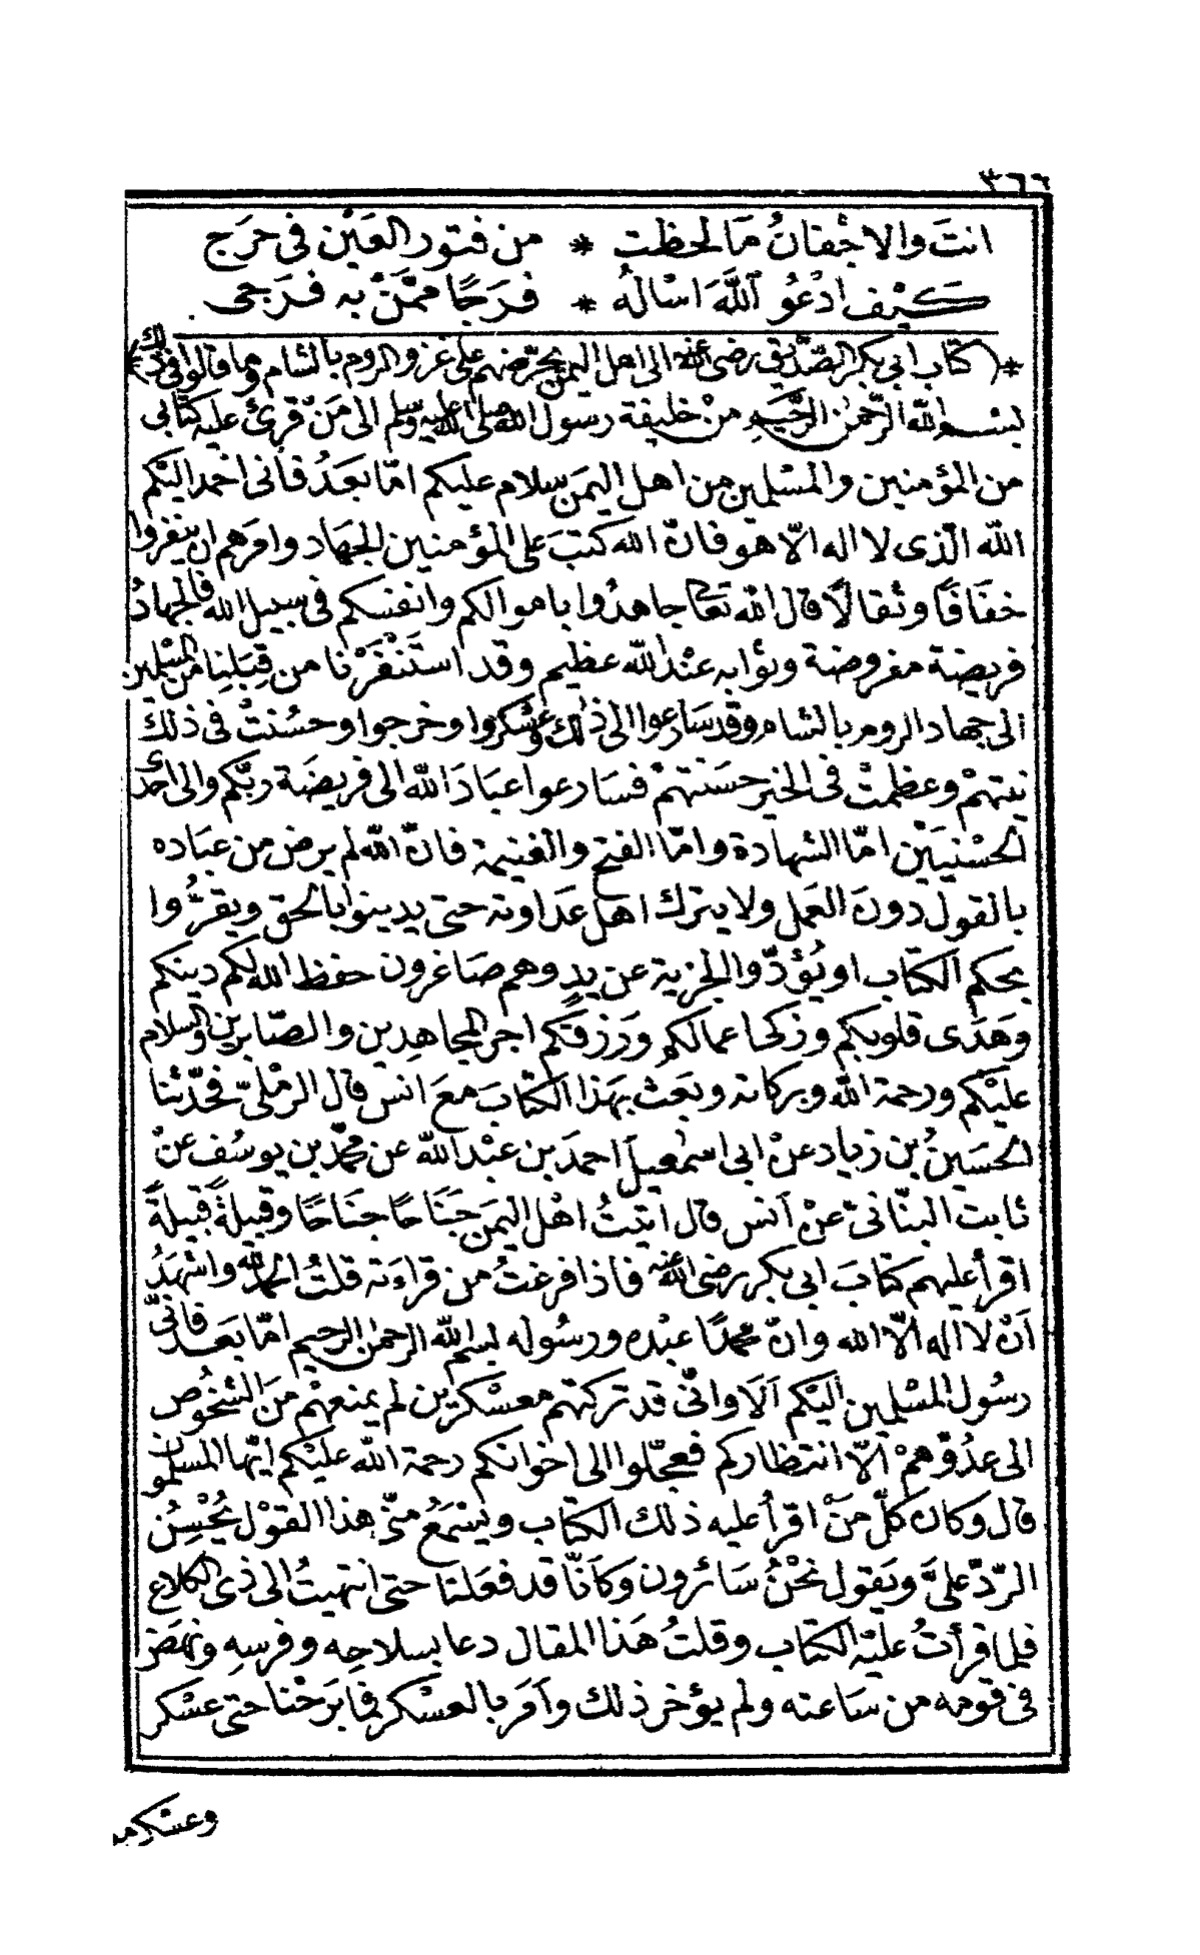 ٣٦٦
انتَ والاجْفانُ مَا لحظت * من فتور العَيْن في حَرَج
كَيْف ادْعُو اللّٰهَ اسْالهُ * فرَجًا ممَّنْ به فرَجى
*(كتاب ابي بكر الصّدّيق رضى الله عنه الى اهل اليمن يحرّضهم على غزو الروم بالشام وما قالوا في ذلك)*
بسم الله الرّحمٰن الرّحيم منْ خليفة رسول الله صلى الله عليه وسلم الى مَنْ قرئ عليه كتابى
من المؤمنين والمسْلمين من اهل اليمن سلام عليكم امّا بعَدُ فأنى احمد اليْكم
الله الّذى لا اله الاّ هو فانّ الله كتبَ على المؤمنين الجهَاد وامَرهم ان ينفروا
خفَافًا وثقالاً قال اللهُ تعالى جاهدُوا باموالكم وانفسكم فى سبيل الله فالجهادُ
فريضة مفروضة وثوابه عنْد الله عظيم وقد استَنْفَرْنا من قِبَلِنا من المسْلمين
الى جهاد الروم بالشام وقد سَارعوا الى ذلك وعسْكروا وخرجوا وحسُنتْ فى ذلك
نيتهمْ وعظمتْ فى الخير حسَنتهمْ فسَارعوا عبَادَ الله الى فريضَة ربّكم والى احدى
الحسْنيَيْن امّا الشهادة وامّا الفتح والغنيمة فانّ الله لم يرض من عبَاده
بالقول دونَ العَمل ولا يترك اهل عَداوته حتى يدينوا بالحق ويقرُّوا
بحكم الكتاب او يُؤدّوا الجزية عن يدٍ وهم صَاغرون حفظ الله لكم دينكم
وهَدَى قلوبكم وزكى اعمالكم ورَزقكم اجر المجاهدين والصّابرين والسلام
عليْكم ورحمة الله وبركاته وبَعث بهَذا الكتابَ معَ انس قال الرمْلىّ فحدّثنا
الحسَينُ بن زياد عنْ ابى اسمٰعيل احمدَ بن عبْد الله عن محمّد بن يوسُف عنْ
ثابت البنّانىّ عنْ انس قال اتيتُ اهْل اليمن جَنَاحًا جنَاحًا وقبيلةً قبيلةً
اقرأ عليهم كتابَ ابى بكر رضى الله عنه فاذا فرغتُ من قراءته قلتُ الحمد لله واشهَدُ
انْ لا اله الاّ الله وانّ محمّدًا عبْده ورسُوله بسم الله الرحمٰن الرحيم امّا بعَد فانّى
رسُول المسْلمين اليْكم اَلاَ وانّى قد تركتهم معسْكرين لم يمنعهمْ منَ الشخوُص
الى عدُوّهمْ الاّ انتظاركم فعجّلوا الى اخوانكم رحمة الله عليْكم ايّها المسلمون
قال وكان كلّ مَنْ اقرأُ عليه ذلك الكتاب ويسْمَعُ منّى هذا القوْل يُحْسِنُ
الرّدّ علىَّ ويَقول نحْنُ سَائرون وكأنّا قد فعَلنا حتى انتهيتُ الى ذى الكلاع
فلما قرأتُ عليْه الكتاب وقلتُ هَذا المقال دعا بسلاحِه وفرسِه ونهَض
فى قومه من سَاعته ولم يؤخر ذلك وأمَر بالعسْكر فما برَحْنا حتى عسْكر
وعسْكر معه